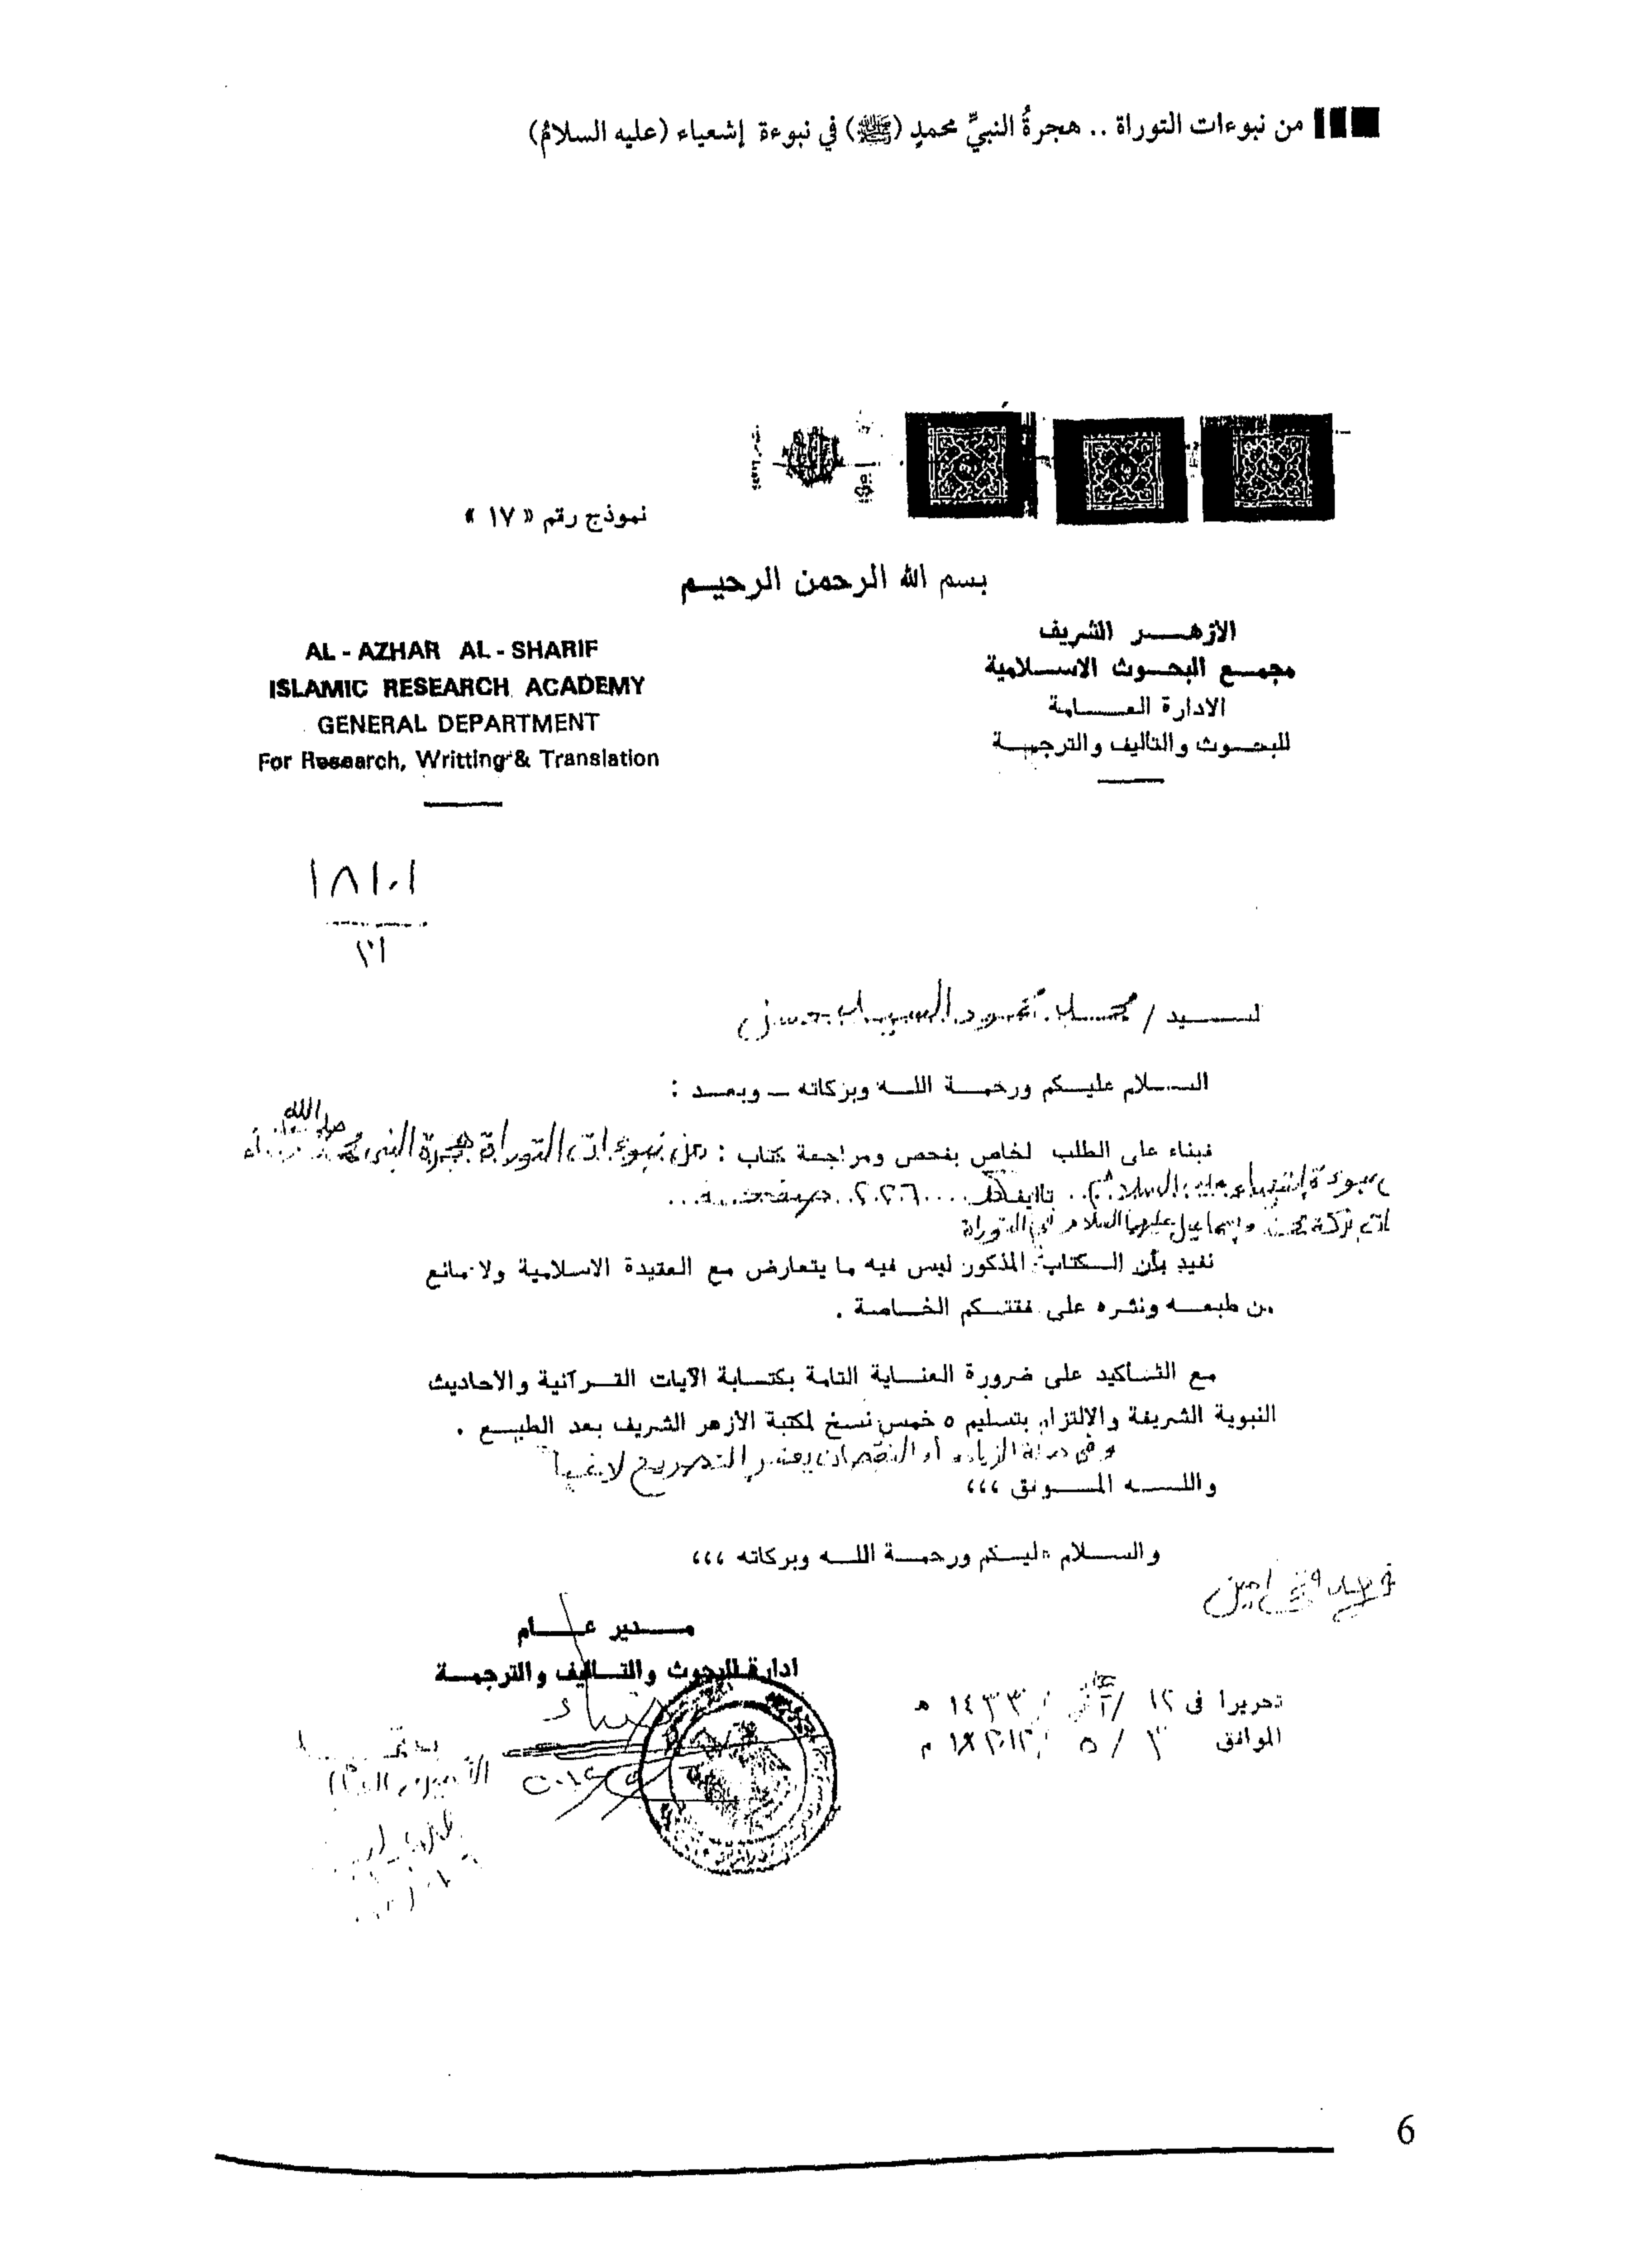 من نبوءات التوراة .. هجرةُ النبيِّ محمدٍ (ﷺ) في نبوءة إشعياء (عليه السلامُ)
نموذج رقم « ١٧ »
بسم الله الرحمن الرحيم
الازهر الشريف
مجمع البحوث الاسلامية
الادارة العامة
للبحوث والتأليف والترجمة
AL - AZHAR AL - SHARIF
ISLAMIC RESEARCH ACADEMY
GENERAL DEPARTMENT
For Research, Writting & Translation
السيد / محمد محمود السيد حسن
السلام عليكم ورحمة الله وبركاته – وبعد :
فبناء على الطلب الخاص بفحص ومراجعة كتاب : من نبوءات التوراة هجرة النبى محمد صلى الله
نبوءة إشعياء عليه السلام .. تأليف
وإسماعيل عليهما السلام فى التوراة
نفيد بأن الكتاب المذكور ليس فيه ما يتعارض مع العقيدة الاسلامية ولا مانع
من طبعه ونشره على نفقتكم الخاصة .
مع التأكيد على ضرورة العناية التامة بكتابة الآيات القرآنية والاحاديث
النبوية الشريفة والالتزام بتسليم ٥ خمس نسخ لمكتبة الأزهر الشريف بعد الطبع .
وفى حالة الزيادة أو النقصان يعتبر التصريح لاغياً
والله الموفق ،،،
والسلام عليكم ورحمة الله وبركاته ،،،
مدير عام
ادارة البحوث والتأليف والترجمة
تحريرا فى ١٢ / / ١٤٣٣ هـ
الموافق ٣ / ٥ / ٢٠١٢ م
6